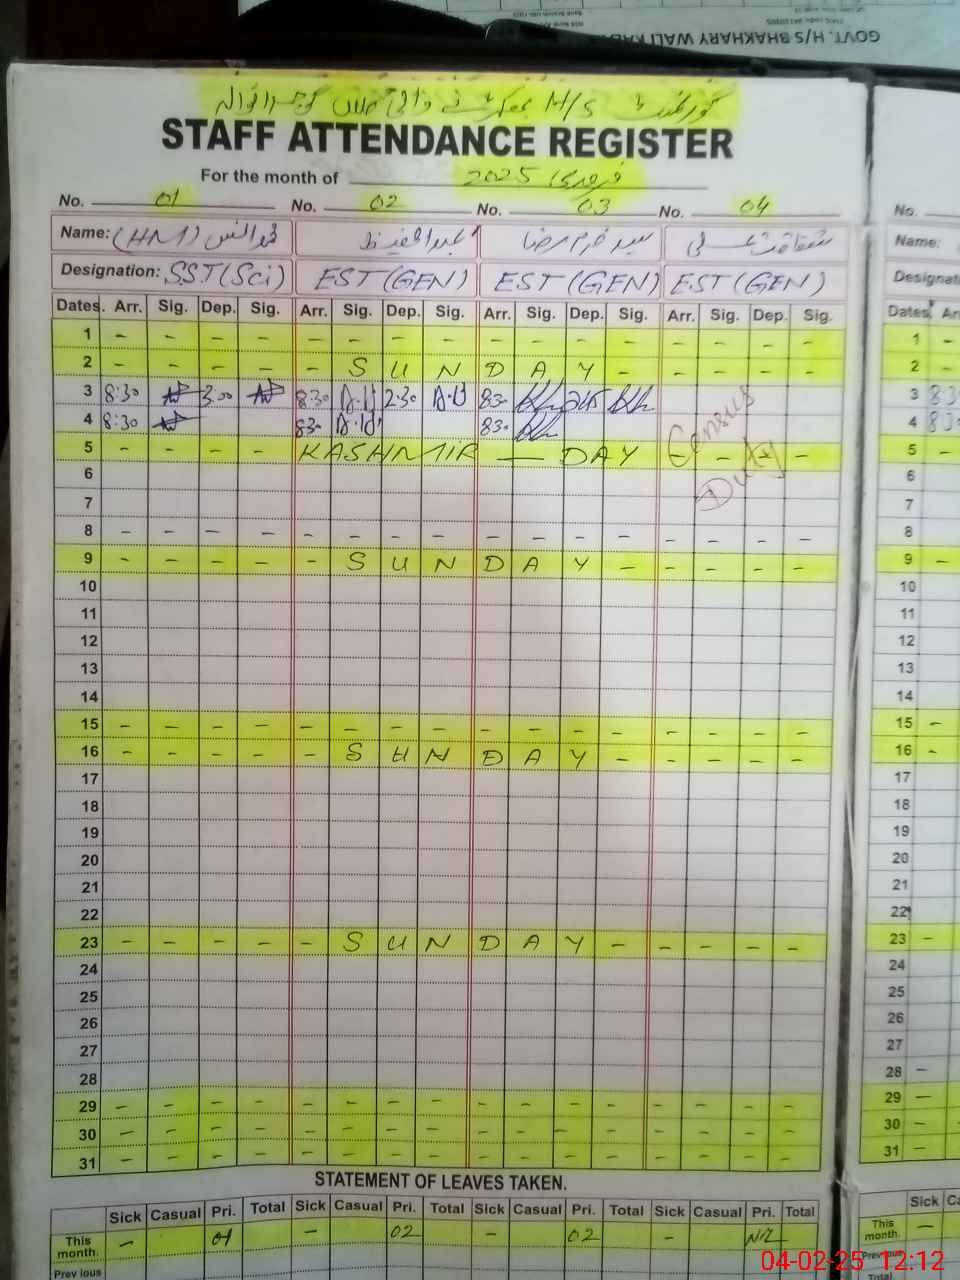 GOVT. H/S BHAKHARY WALI
گورنمنٹ H/S
STAFF ATTENDANCE REGISTER
For the month of فروری 2025
No. 01 No. 02 No. 03 No. 04 No.
Name: (HM) عبدالحفیظ سید خرم رضا Name:
Designation: SST(Sci) EST(GEN) EST(GEN) EST(GEN)
Dates. Arr. Sig. Dep. Sig. Arr. Sig. Dep. Sig. Arr. Sig. Dep. Sig. Arr. Sig. Dep. Sig. Dates
1 - - - - - - - - - - - - - - - - 1 -
2 - - - - - S U N D A Y - - - - - 2 -
3 8:30 3:00 830 2:30 830 245 3
4 8:30 830 830 4
Census
Duty
5 - - - - KASHMIR — DAY - - - 5 -
6 6
7 7
8 - - - - - - - - - - - - - - - - 8
9 - - - - - S U N D A Y - - - - - 9 -
10 10
11 11
12 12
13 13
14 14
15 - - - - - - - - - - - - - - - - 15 -
16 - - - - - S U N D A Y - - - - - 16 -
17 17
18 18
19 19
20 20
21 21
22 22
23 - - - - - S U N D A Y - - - - - 23 -
24 24
25 25
26 26
27 27
28 28 -
29 - - - - - - - - - - - - - - - - 29 -
30 - - - - - - - - - - - - - - - - 30 -
31 - - - - - - - - - - - - - - - - 31 -
STATEMENT OF LEAVES TAKEN.
Sick Casual Pri. Total Sick Casual Pri. Total Sick Casual Pri. Total Sick Casual Pri. Total Sick
This month. - 01 - 02 - 02 - Nil This month. -
Previous Previous
04-02-25 12:12